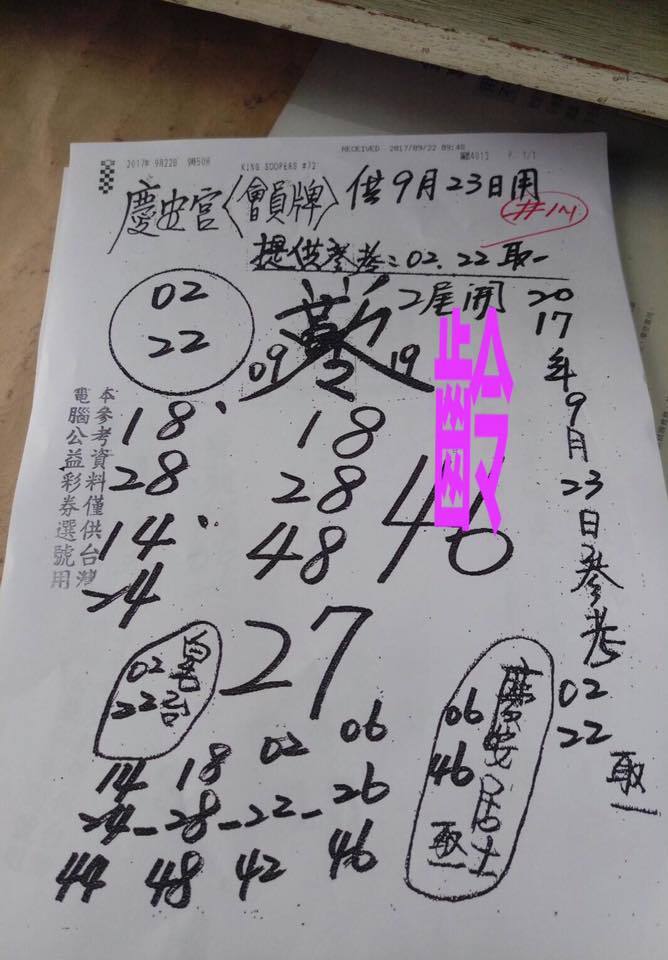 RECEIVED 2017/09/22 09:48
2017年 9月22日 9時50分 KING SOOPERS #72 P. 1/1
慶安宮〈會員牌〉供9月23日用
#14
提供參考:02.22取一
02
22
2尾開
09 19
2017年9月23日參考
02
22
取一
齡
本參考資料僅供台灣
電腦公益彩券選號用
18、 18
28 28
14、 48 46
24
27
02
22
慶安居士
06
46
取一
14 18 02 06
24-28-22-26
44 48 42 46